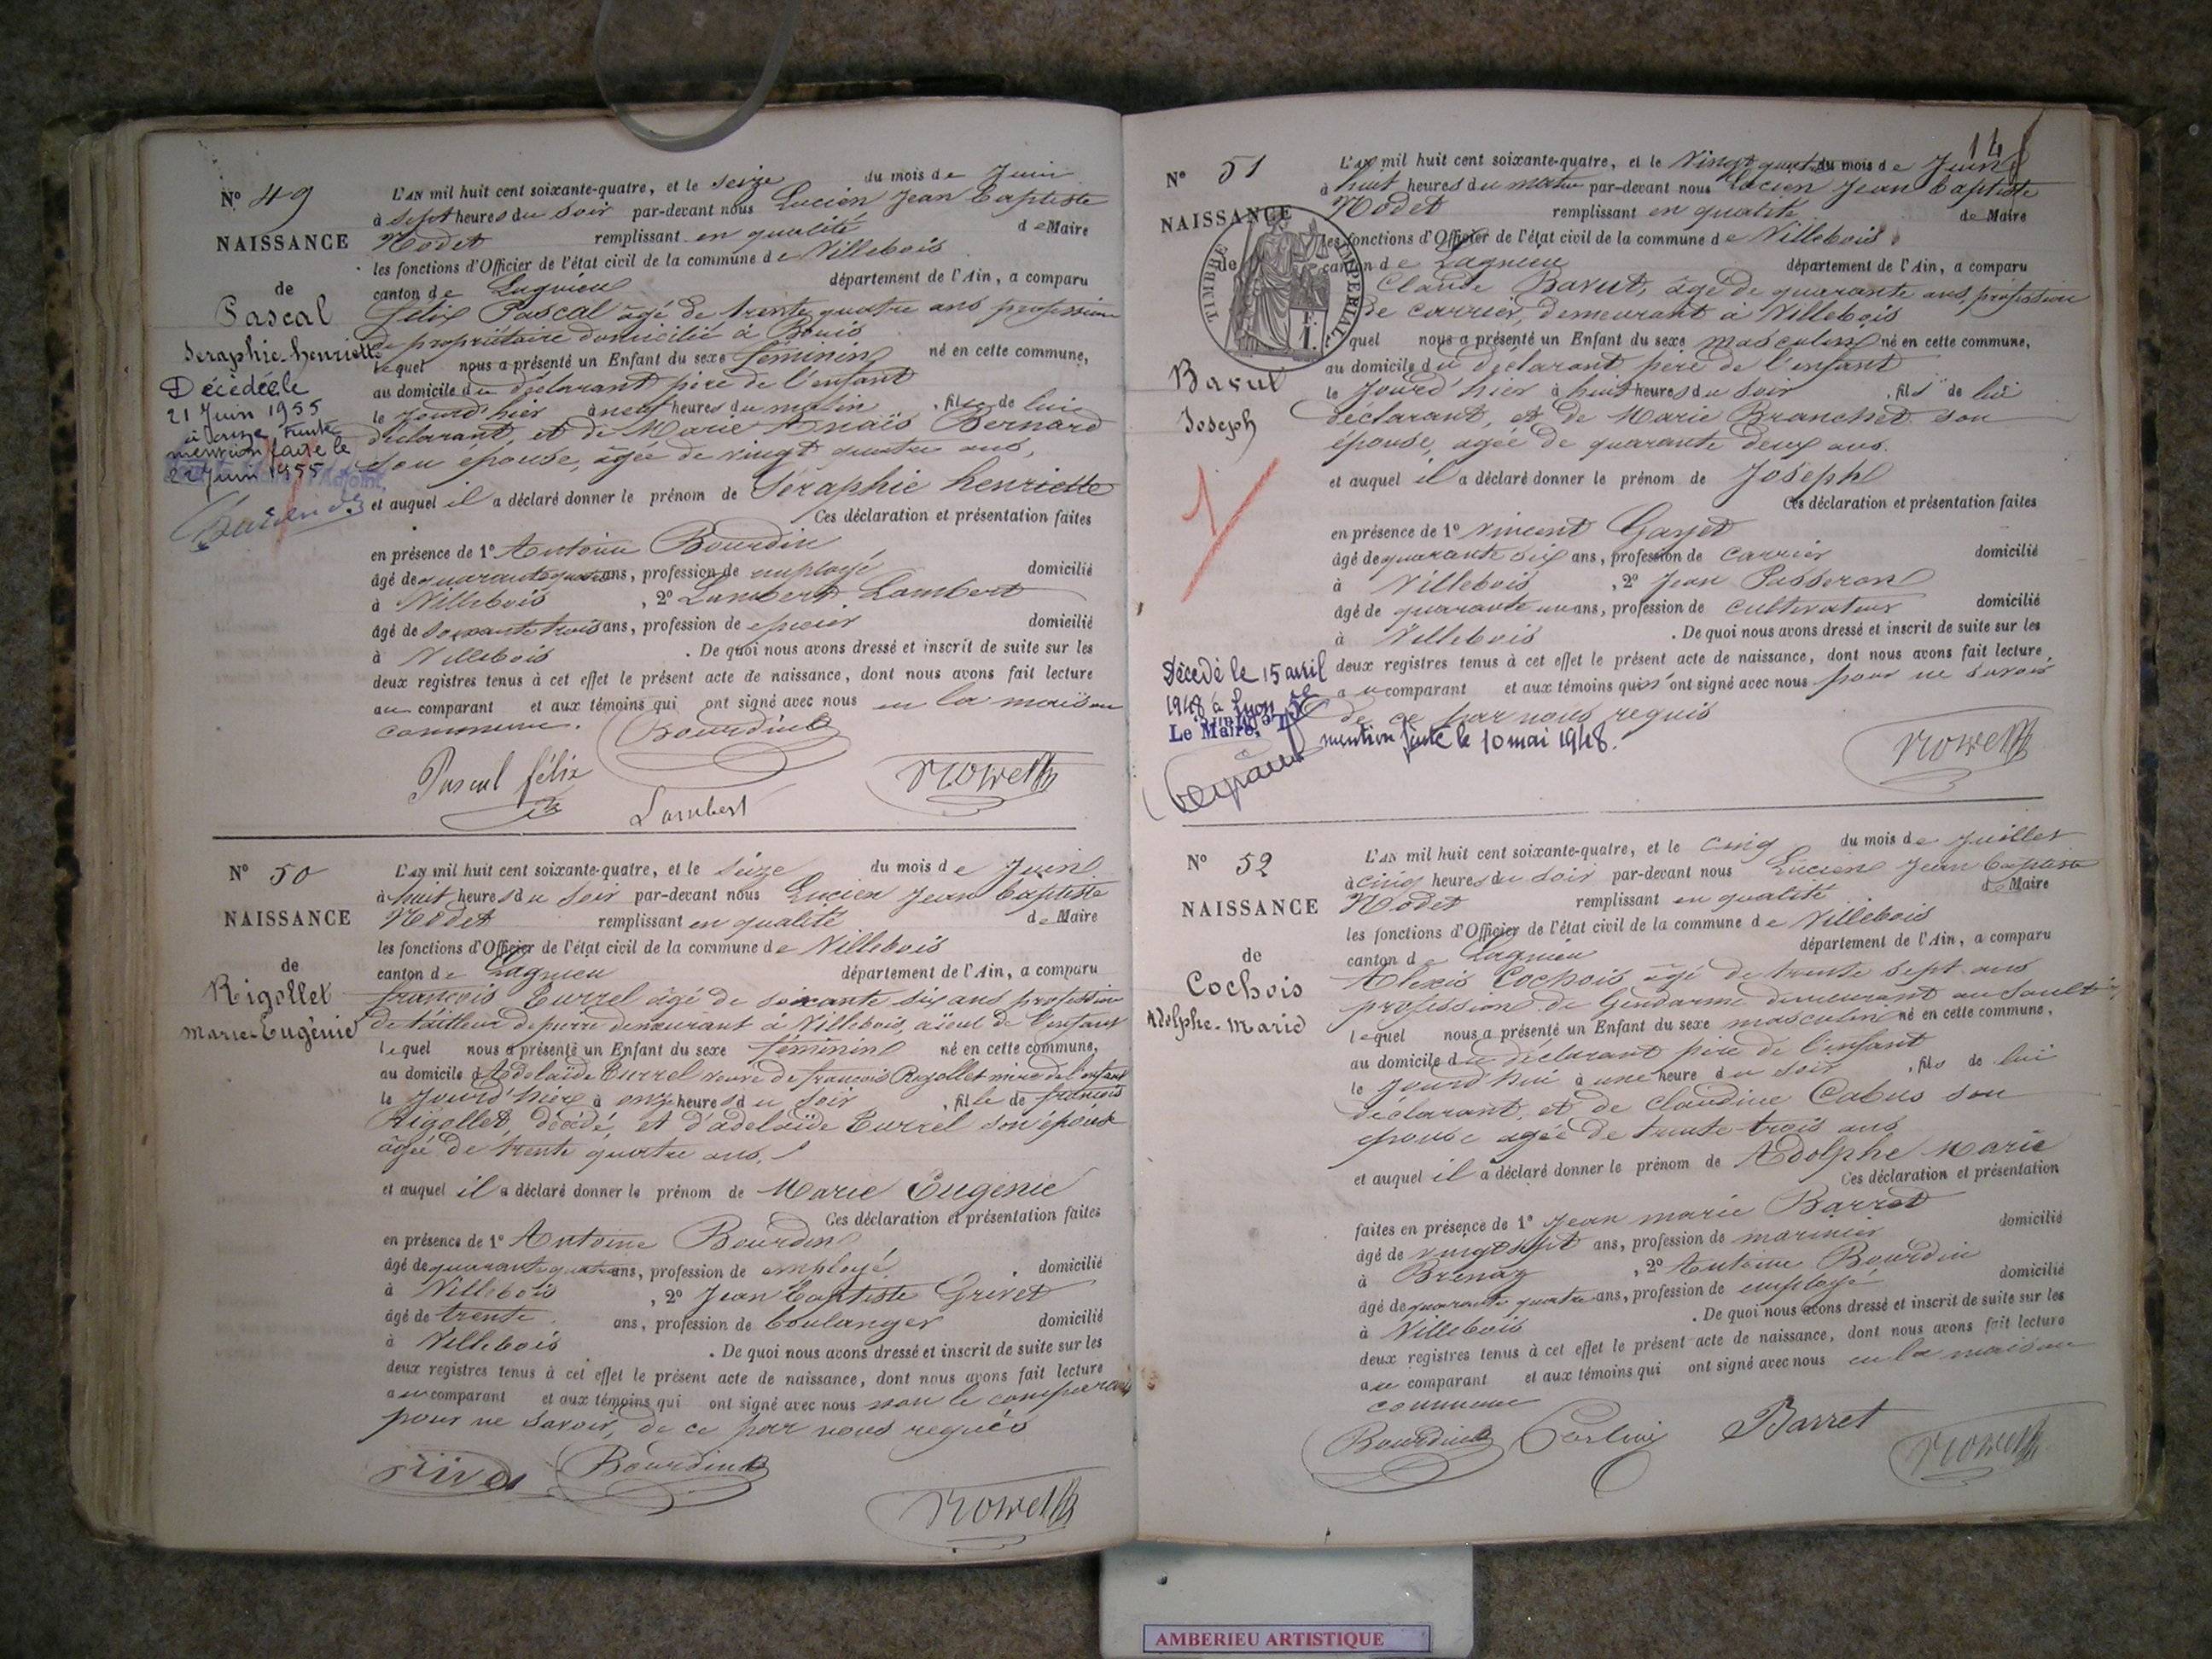 Nº 49
NAISSANCE
de
Pascal
Seraphie-henriette
Décédée le
21 Juin 1955
à seize
mention faite le
22 Juin 1955
L'AN mil huit cent soixante-quatre, et le Seize du mois de Juin
à Sept heures du Soir par-devant nous Lucien Jean Baptiste
Nodet remplissant en qualité de Maire
les fonctions d'Officier de l'état civil de la commune de Villebois
canton de Lagnieu département de l'Ain, a comparu
félix Pascal âgé de trente quatre ans profession
de propriétaire domicilié à Bouis
lequel nous a présenté un Enfant du sexe féminin né en cette commune,
au domicile du déclarant père de l'enfant
le jourd'hier à neuf heures du matin, fille de lui
déclarant, et de Marie Anaïs Bernard
son epouse, âgée de vingt quatre ans,
et auquel il a déclaré donner le prénom de Séraphie henriette
Ces déclaration et présentation faites
en présence de 1º Antoine Bourdin
âgé de quarante quatre ans, profession de employé domicilié
à Villebois, 2º Lambert Lambert
âgé de soixante trois ans, profession de epicier domicilié
à Villebois. De quoi nous avons dressé et inscrit de suite sur les
deux registres tenus à cet effet le présent acte de naissance, dont nous avons fait lecture
au comparant et aux témoins qui ont signé avec nous en la maison
commune.
Bourdin
Pascal félix
Lambert
Nº 50
NAISSANCE
de
Rigollet
Marie-Eugénie
L'AN mil huit cent soixante-quatre, et le Seize du mois de Juin
à huit heures du Soir par-devant nous Lucien Jean Baptiste
Nodet remplissant en qualité de Maire
les fonctions d'Officier de l'état civil de la commune de Villebois
canton de Lagnieu département de l'Ain, a comparu
françois Turrel âgé de soixante six ans profession
de tailleur de pierre demeurant à Villebois, aïeul de l'enfant
lequel nous a présenté un Enfant du sexe féminin né en cette commune,
au domicile d'Adelaïde Turrel veuve de françois Rigollet mère de l'enfant
le jourd'hier à onze heures du Soir, fille de françois
Rigollet, décédé, et d'adelaïde Turrel son épouse
âgée de trente quatre ans,
et auquel il a déclaré donner le prénom de Marie Eugénie
Ces déclaration et présentation faites
en présence de 1º Antoine Bourdin
âgé de quarante quatre ans, profession de employé domicilié
à Villebois, 2º Jean Baptiste Grivet
âgé de trente ans, profession de boulanger domicilié
à Villebois. De quoi nous avons dressé et inscrit de suite sur les
deux registres tenus à cet effet le présent acte de naissance, dont nous avons fait lecture
au comparant et aux témoins qui ont signé avec nous non le comparant
pour ne savoir, de ce par nous requis
Bourdin
14
Nº 51
NAISSANCE
de
TIMBRE IMPERIAL
1.
Bavut
Joseph
Décédé le 15 avril
1948 à Lyon
Le Maire,
mention faite le 10 mai 1948.
L'AN mil huit cent soixante-quatre, et le Vingt quatre du mois de Juin
à huit heures du matin par-devant nous Lucien Jean baptiste
Nodet remplissant en qualité de Maire
les fonctions d'Officier de l'état civil de la commune de Villebois
canton de Lagnieu département de l'Ain, a comparu
Claude Bavut, âgé de quarante ans, profession
de carrier, demeurant à Villebois
lequel nous a présenté un Enfant du sexe masculin né en cette commune,
au domicile du déclarant père de l'enfant
le jourd'hier à huit heures du soir, fils de lui
déclarant, et de Marie Branchet son
épouse, agée de quarante deux ans.
et auquel il a déclaré donner le prénom de Joseph
Ces déclaration et présentation faites
en présence de 1º Vincent Gayet
âgé de quarante six ans, profession de carrier domicilié
à Villebois, 2º Jean Passeron
âgé de quarante un ans, profession de cultivateur domicilié
à Villebois. De quoi nous avons dressé et inscrit de suite sur les
deux registres tenus à cet effet le présent acte de naissance, dont nous avons fait lecture,
au comparant et aux témoins qui n'ont signé avec nous pour ne savoir
de ce par nous requis
Nº 52
NAISSANCE
de
Cochois
Adolphe-Marie
L'AN mil huit cent soixante-quatre, et le cinq du mois de Juillet
à cinq heures du soir par-devant nous Lucien Jean baptiste
Nodet remplissant en qualité de Maire
les fonctions d'Officier de l'état civil de la commune de Villebois
canton de Lagnieu département de l'Ain, a comparu
Alexis Cochois âgé de trente sept ans
profession de Gendarme demeurant au Sault
lequel nous a présenté un Enfant du sexe masculin né en cette commune,
au domicile du déclarant père de l'enfant
le jourd'hui à une heure du soir, fils de lui
déclarant, et de Claudine Cabus son
epouse agée de trente-trois ans
et auquel il a déclaré donner le prénom de Adolphe Marie
Ces déclaration et présentation
faites en présence de 1º Jean marie Barret
âgé de vingt sept ans, profession de marinier domicilié
à Brenaz, 2º Antoine Bourdin
âgé de quarante quatre ans, profession de employé domicilié
à Villebois. De quoi nous avons dressé et inscrit de suite sur les
deux registres tenus à cet effet le présent acte de naissance, dont nous avons fait lecture
au comparant et aux témoins qui ont signé avec nous en la maison
commune
Bourdin Barret
AMBERIEU ARTISTIQUE